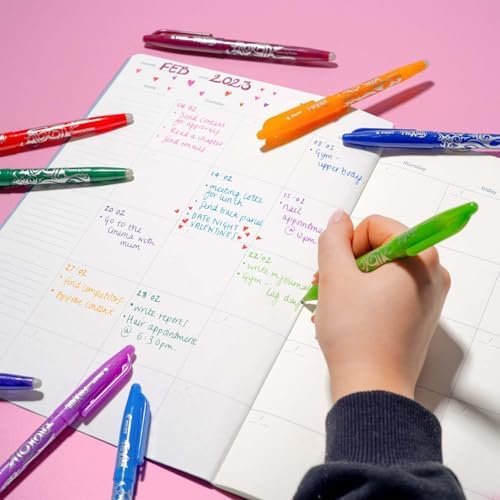 FEB 2023
06.02
• Send content
for approvals
• Read a chapter
• Send emails
08.02
• Gym -
upper body
14.02
• meeting Lotte
for lunch
• Send back parcel
• DATE NIGHT
VALENTINES
15.02
• nail
appointment
@ 12pm
20.02
• Go to the
cinema with
mum
22.02
• write in journal
• Gym -
leg day
27.02
• find competitors
• Approve content
28.02
• write reports
• Hair appointment
@ 6:30pm
thursday
friXion